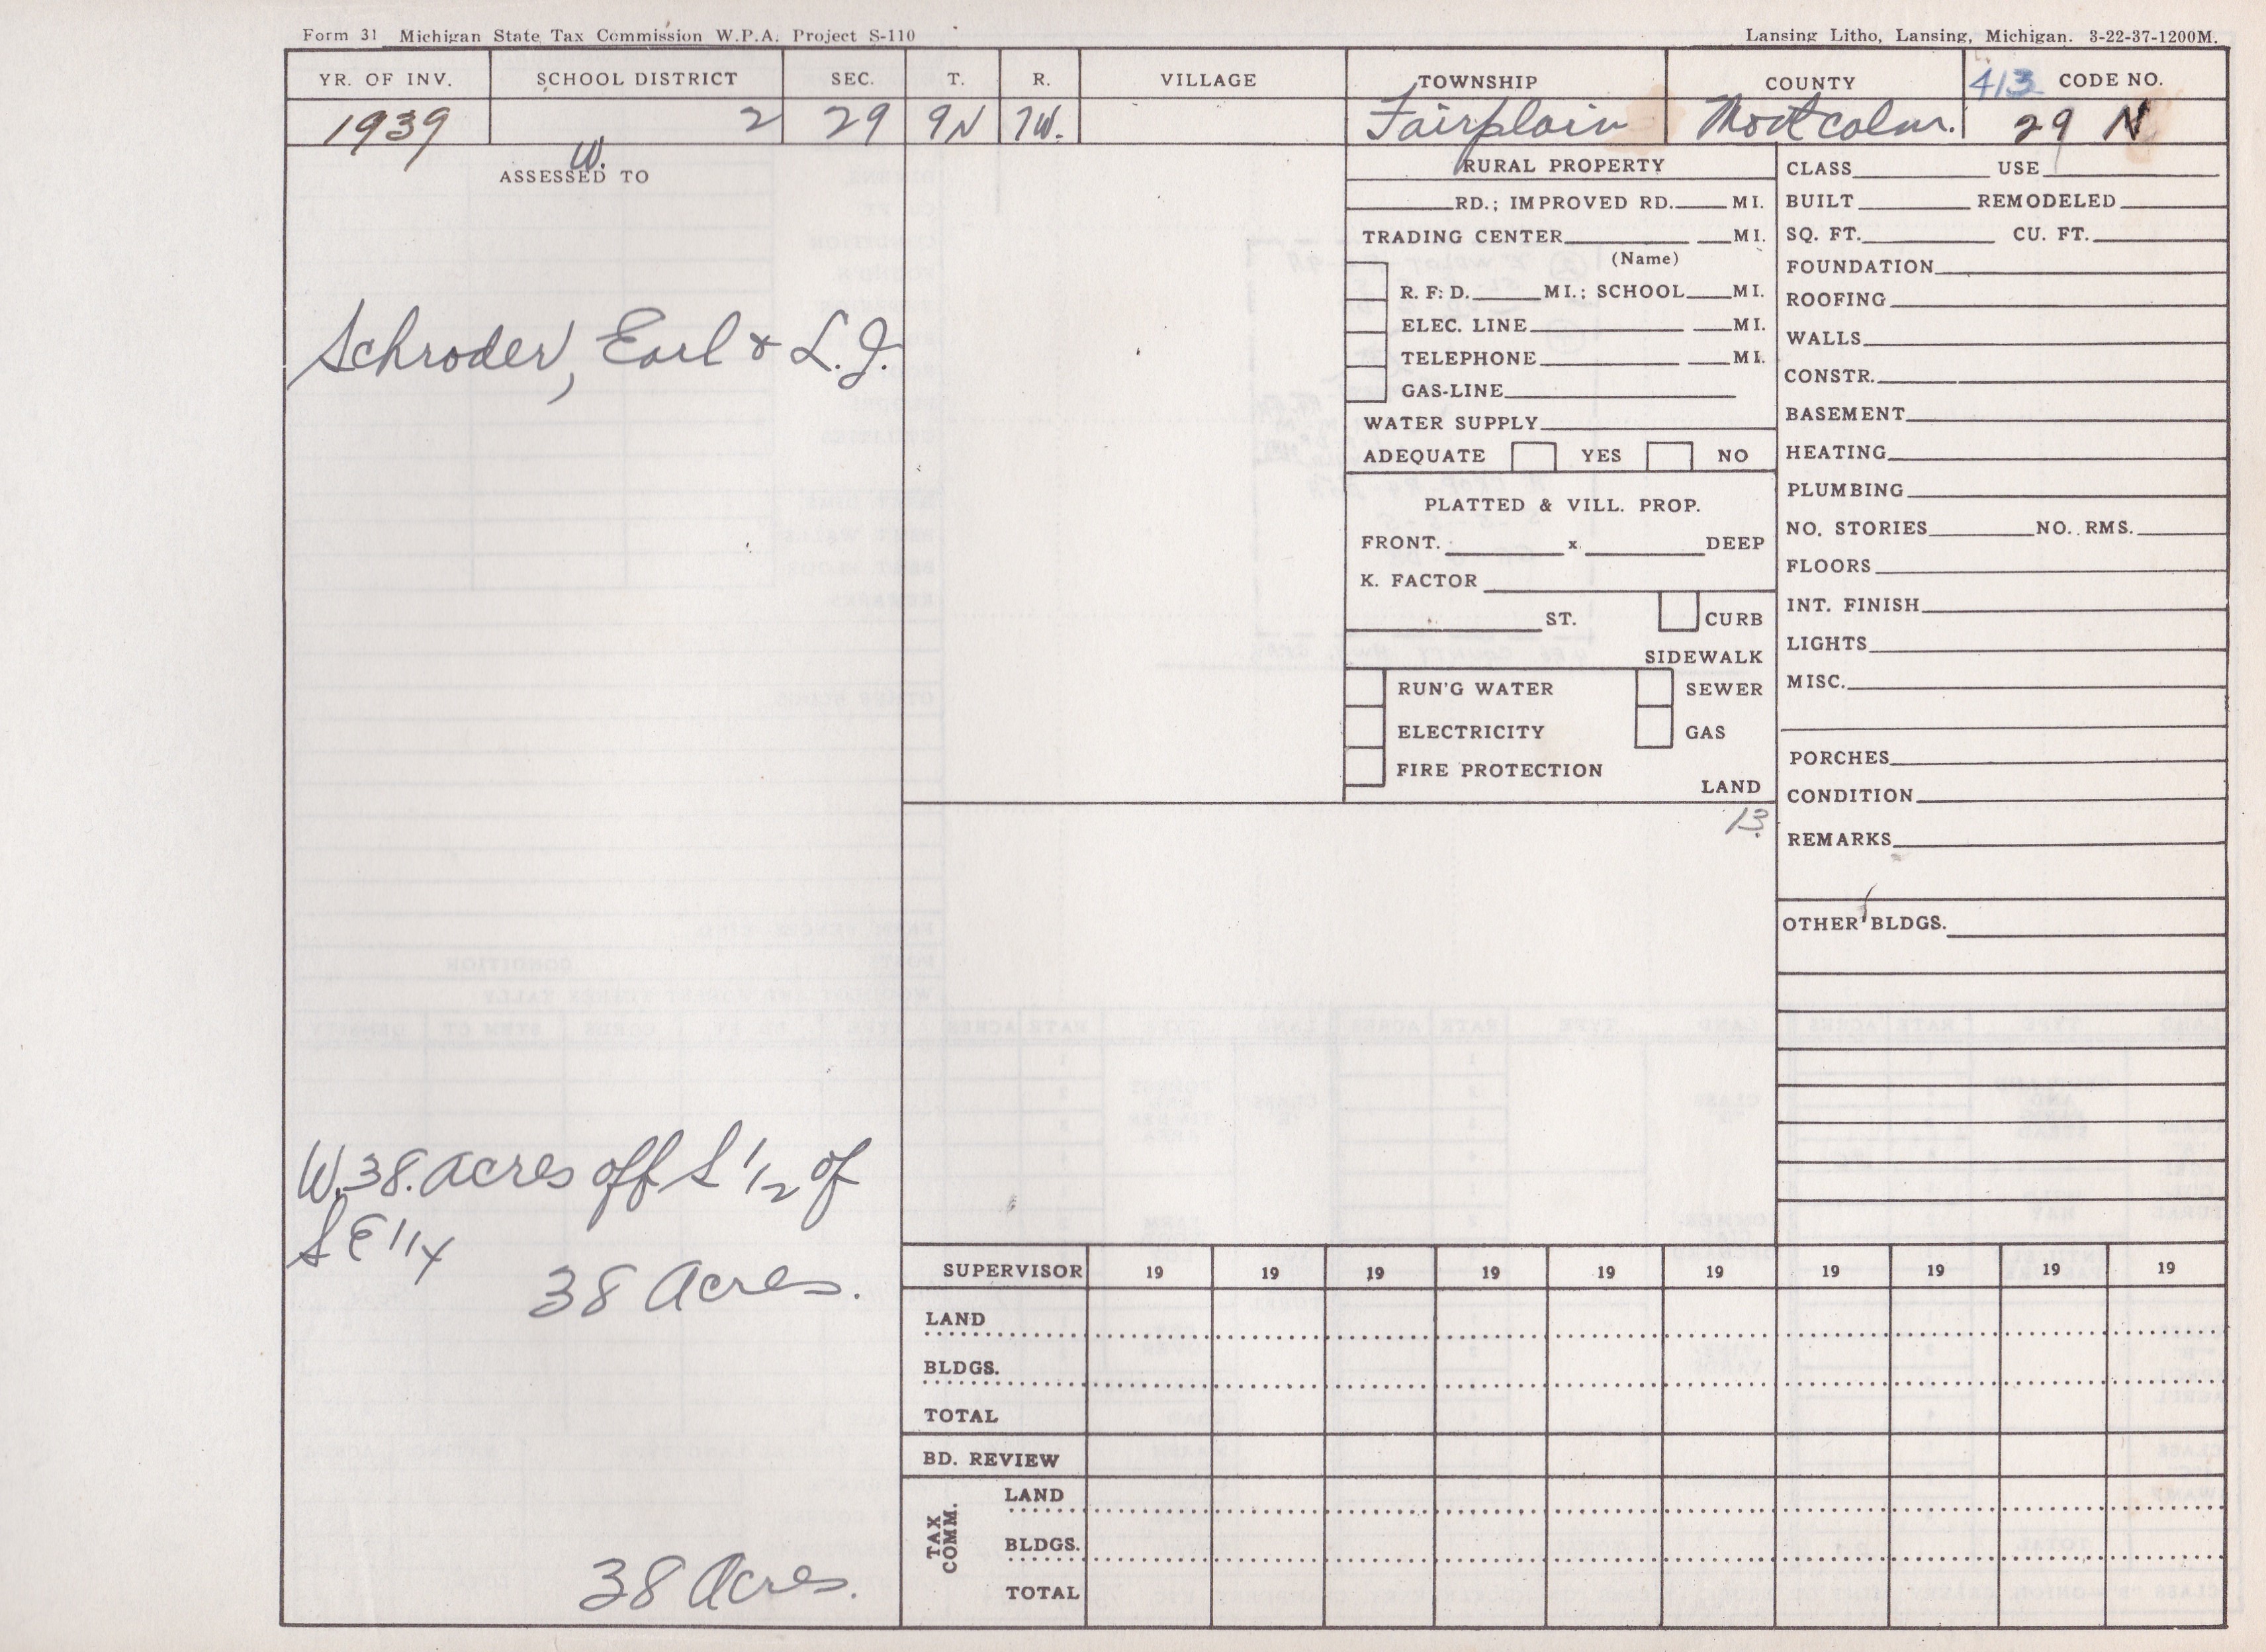 Form 31 Michigan State Tax Commission W.P.A. Project S-110
Lansing Litho, Lansing, Michigan. 3-22-37-1200M.
YR. OF INV. SCHOOL DISTRICT SEC. T. R. VILLAGE TOWNSHIP COUNTY 413 CODE NO.
1939 2 29 9N 7W. Fairplain Montcalm. 29 N
W.
ASSESSED TO
Schroder, Earl & L.J.
W. 38. acres off S 1/2 of
S E 1/4
38 Acres.
38 Acres.
RURAL PROPERTY
RD.; IMPROVED RD. MI.
TRADING CENTER MI.
(Name)
R. F. D. MI.; SCHOOL MI.
ELEC. LINE MI.
TELEPHONE MI.
GAS-LINE
WATER SUPPLY
ADEQUATE YES NO
PLATTED & VILL. PROP.
FRONT. x DEEP
K. FACTOR
ST. CURB
SIDEWALK
RUN'G WATER SEWER
ELECTRICITY GAS
FIRE PROTECTION
LAND
13.
CLASS USE
BUILT REMODELED
SQ. FT. CU. FT.
FOUNDATION
ROOFING
WALLS
CONSTR.
BASEMENT
HEATING
PLUMBING
NO. STORIES NO. RMS.
FLOORS
INT. FINISH
LIGHTS
MISC.
PORCHES
CONDITION
REMARKS
OTHER BLDGS.
SUPERVISOR 19 19 19 19 19 19 19 19 19 19
LAND
BLDGS.
TOTAL
BD. REVIEW
TAX COMM.
LAND
BLDGS.
TOTAL